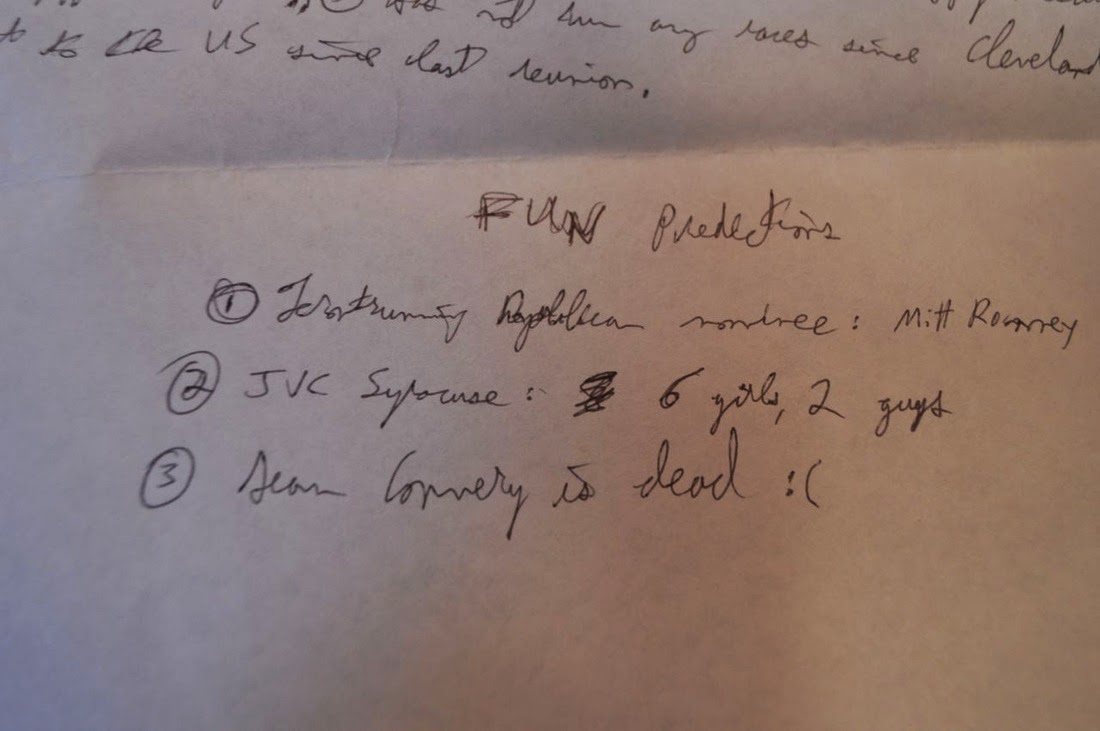 has not run any races since Cleveland
to the US since last reunion.
FUN Predections
① Frontrunning Republican nominee: Mitt Romney
② JVC Syracuse: 6 girls, 2 guys
③ Sean Connery is dead :(